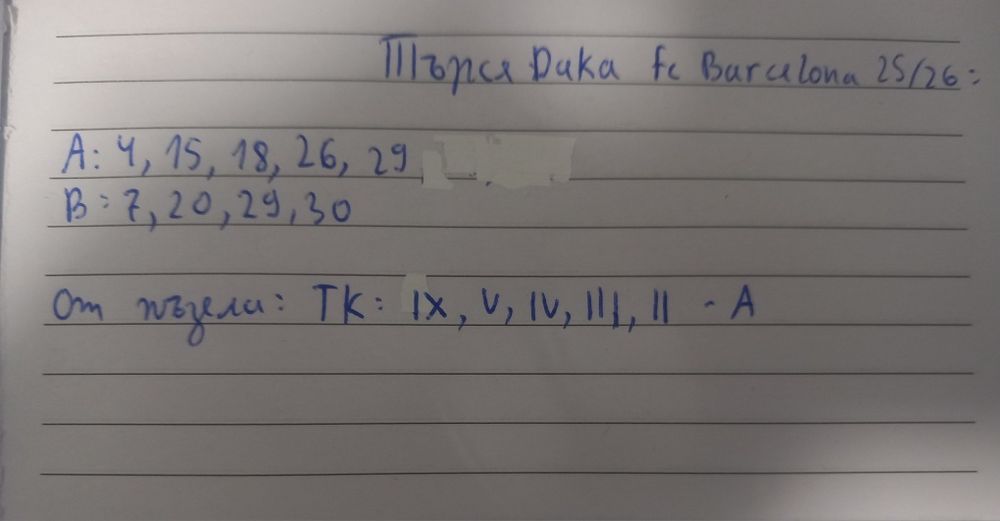 Търся Дика fc Barcelona 25/26:
A: 4, 15, 18, 26, 29
B: 7, 20, 29, 30
От пъзели: ТК: IX, V, IV, III, II - A